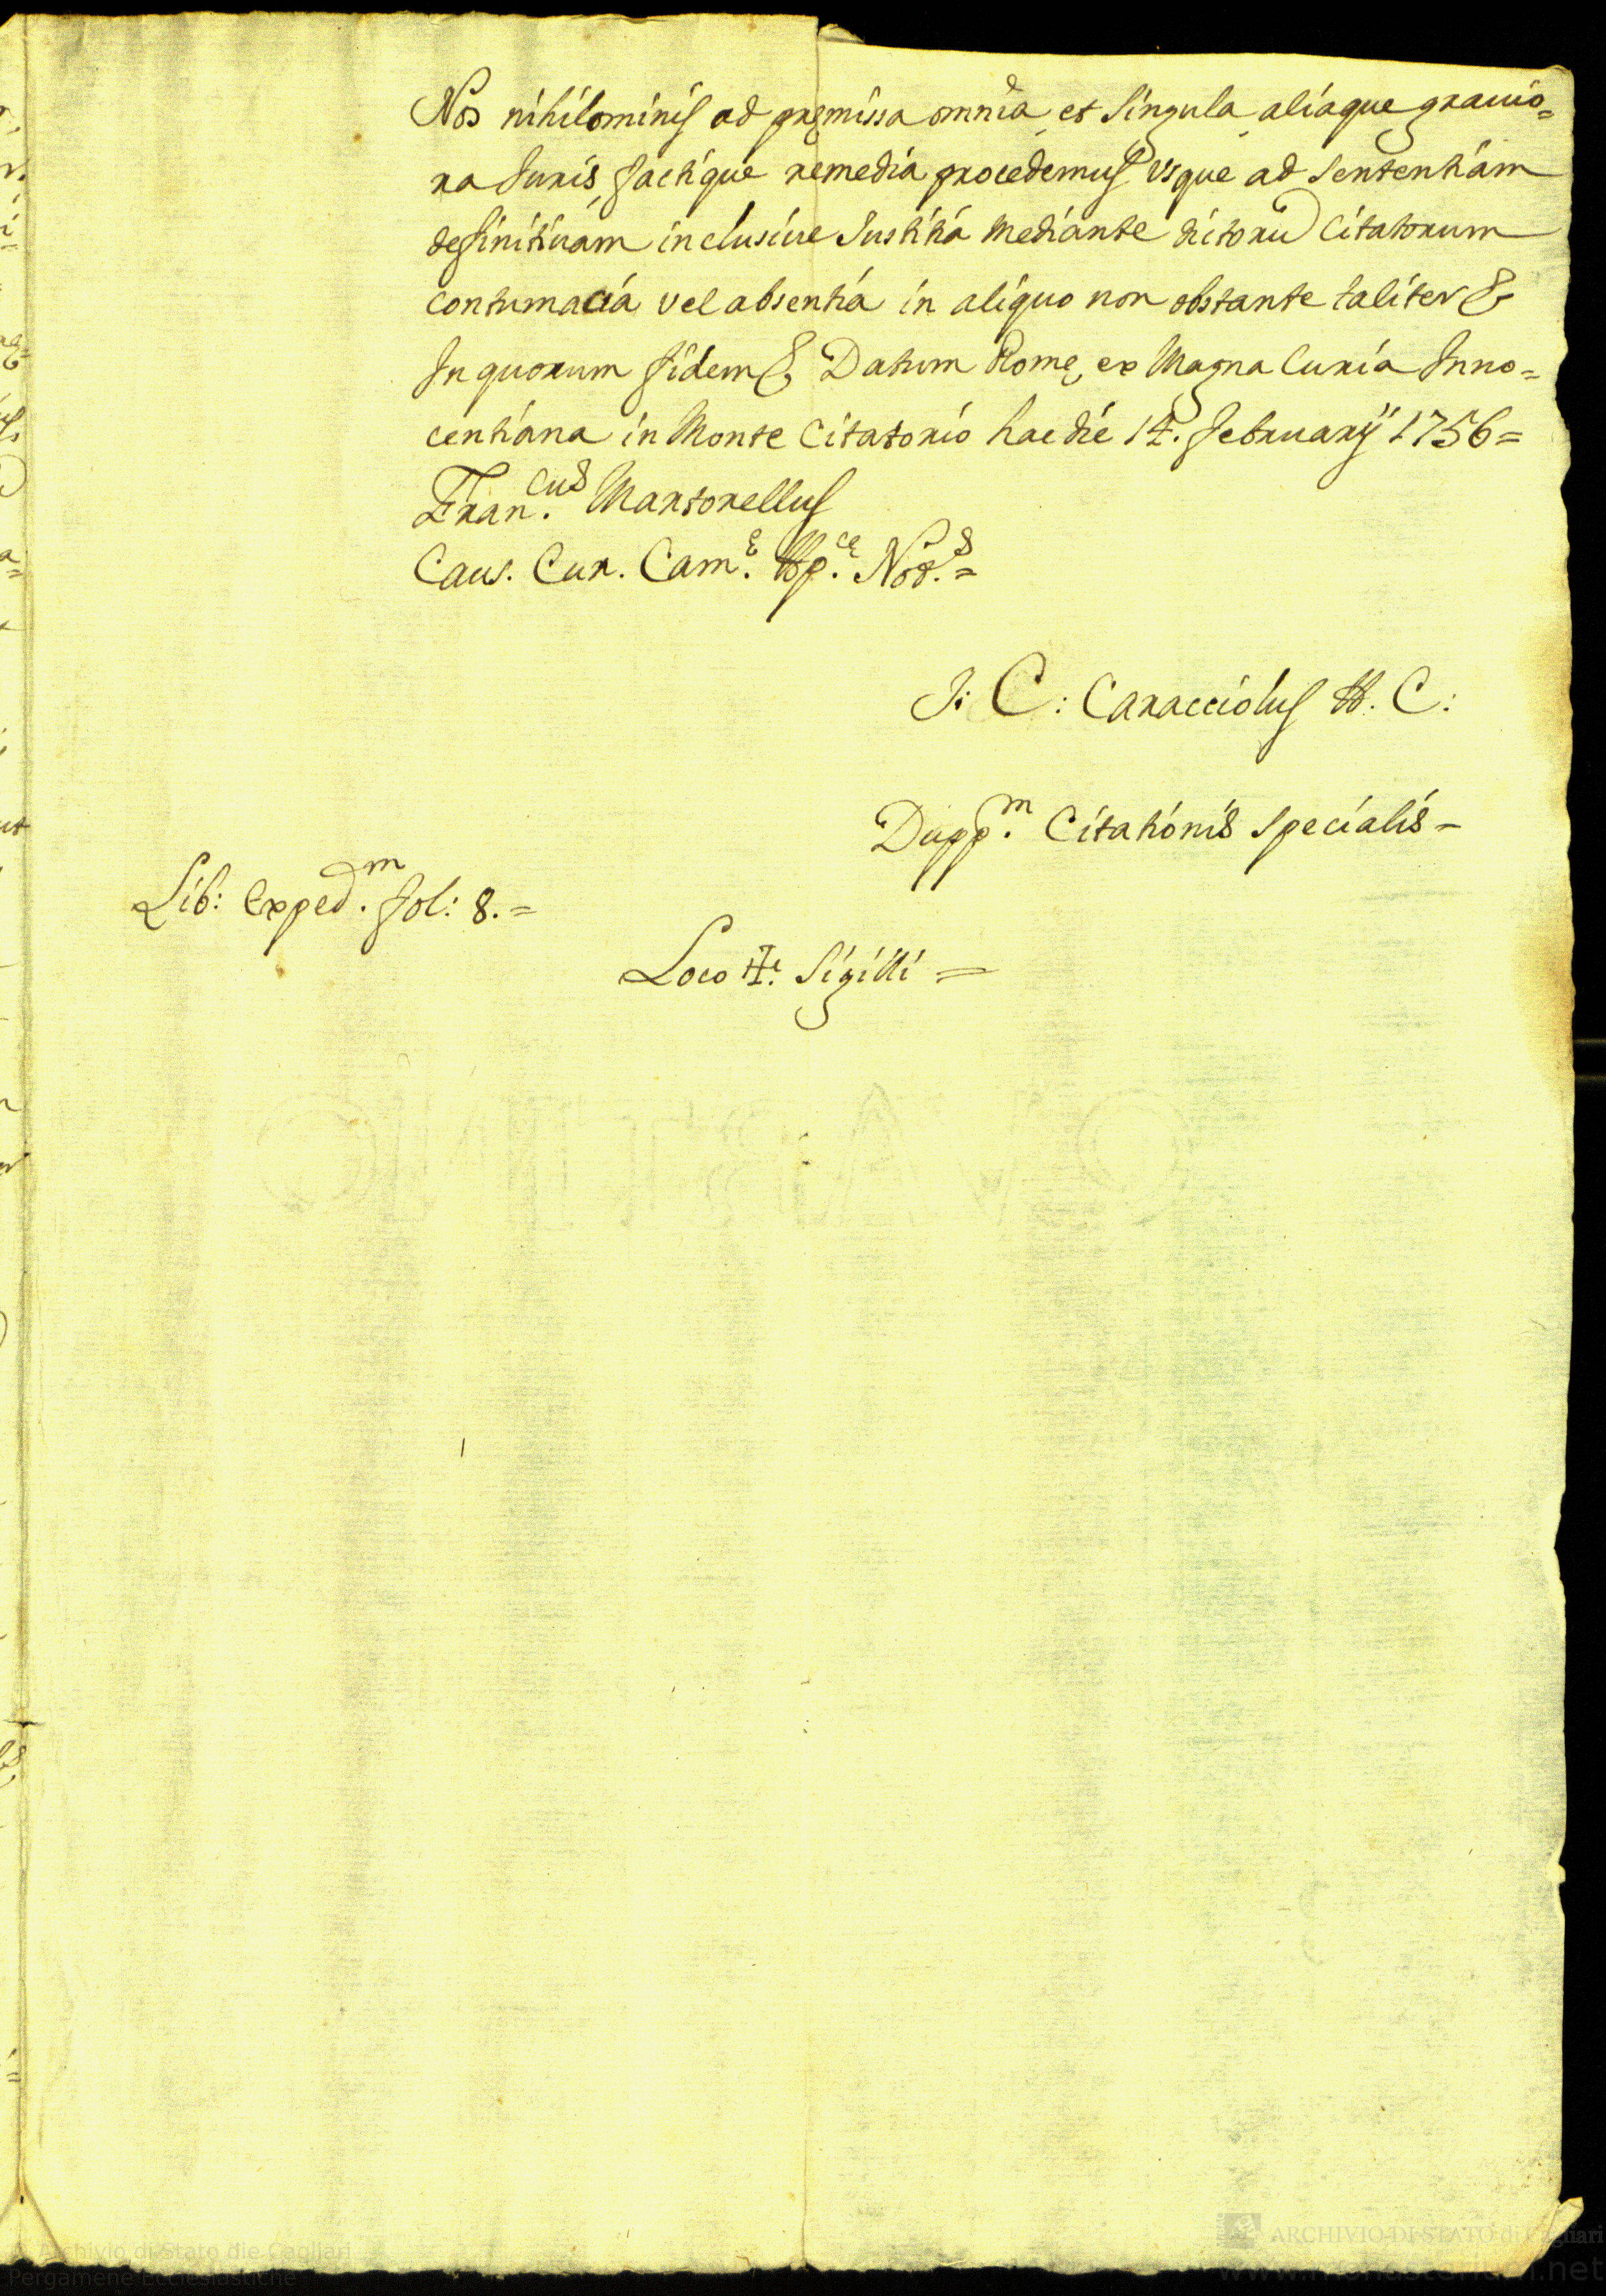 Nos nihilominis ad pręmissa omnia, et singula, aliaque grauio=
ra Iuris, factique remedia procedemus usque ad sententiam
definitiuam inclusiue Iustitia mediante dictorũ Citatorum
contumacia vel absentia in aliquo non obstante taliter &
In quorum fidem & Datum Romę, ex Magna Curia Inno=
centiana in Monte Citatorio hac die 14. februarÿ 1756=
Fran.cus Martorellus
Caus. Cur. Cam.ę Ap.cę Not.s=
I: C: Caracciolus A. C:
Dupp.m Citationis specialis=
Lib: Exped.m fol: 8.=
Loco ✠ Sigilli =
Archivio di Stato die Cagliari
Pergamene Ecclesiastiche
ARCHIVIO DI STATO di Cagliari
www.monasterium.net